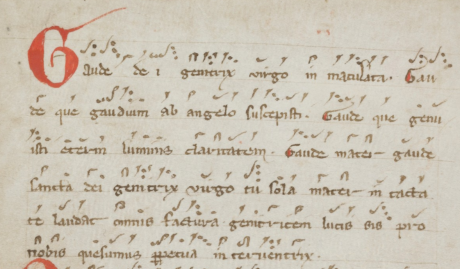 Gaude de i genitrix virgo in maculata. Gau
de que gaudium ab angelo suscepisti. Gaude que genu
isti eterni luminis claritatem. Gaude mater gaude
sancta dei genitrix virgo tu sola mater in tacta
te laudat omnis factura genitricem lucis sis pro
nobis quesumus ꝑpetua interventrix.